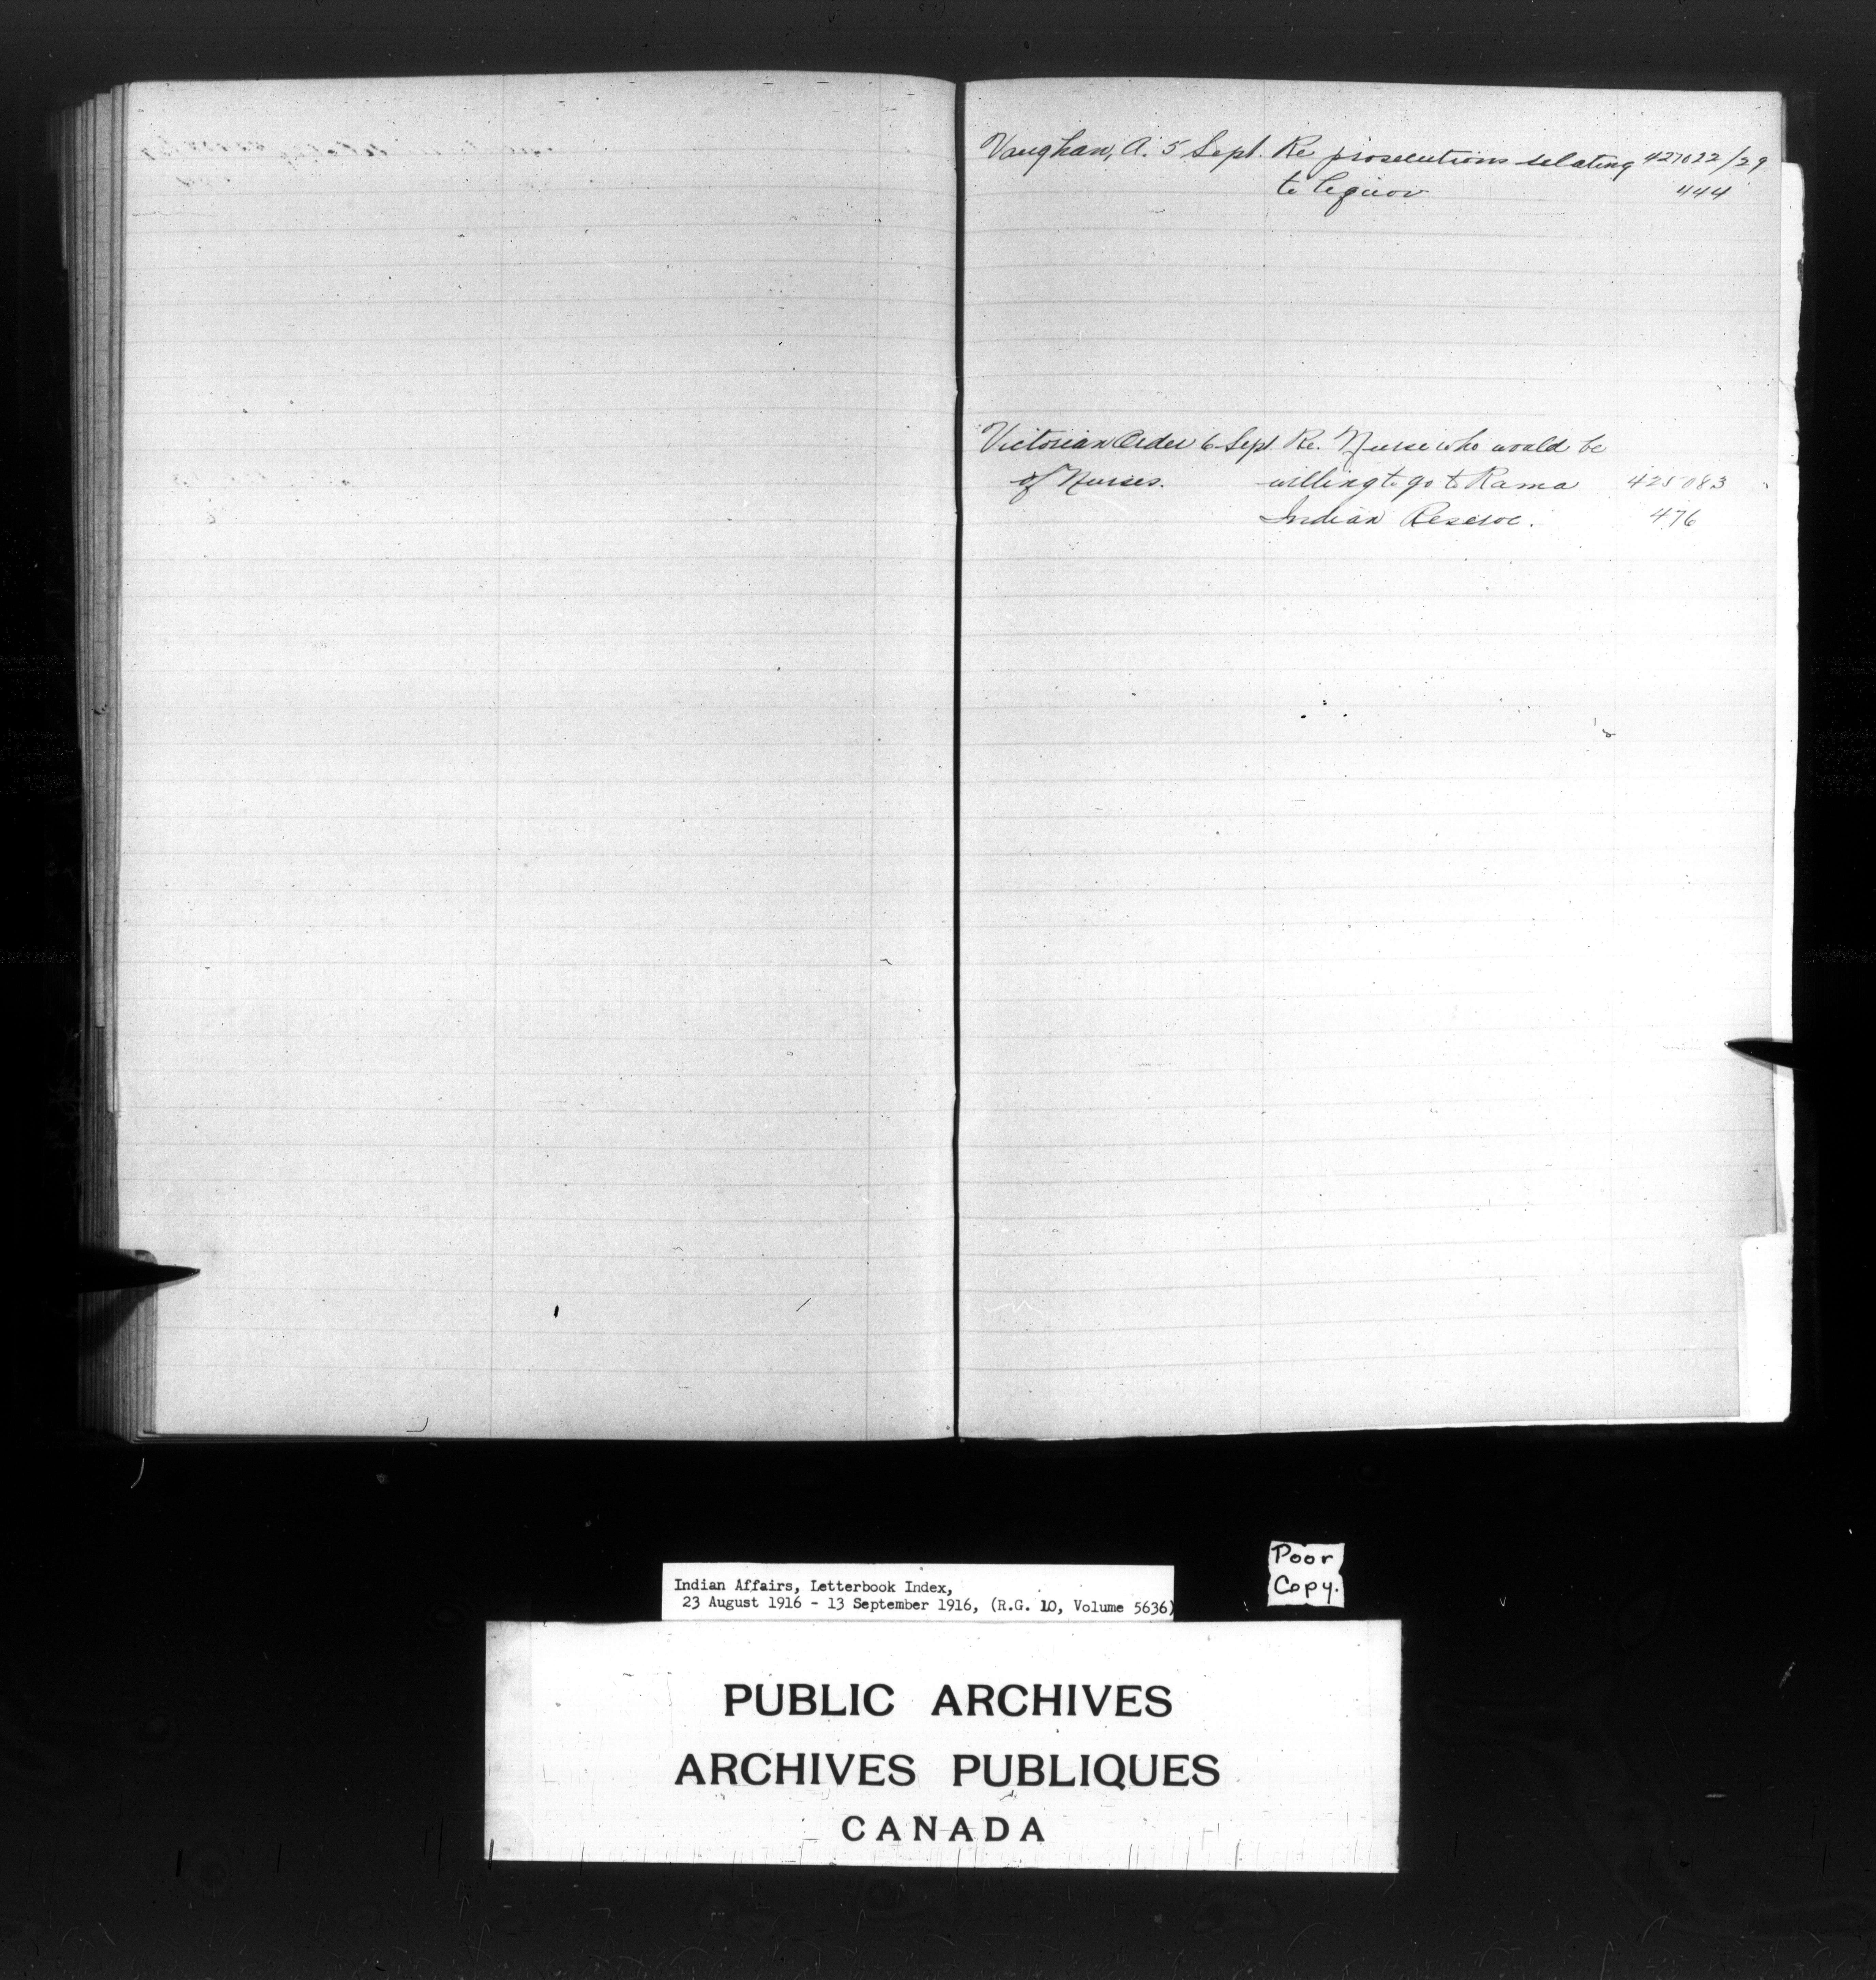 Vaughan, A. 5 Sept. Re prosecutions relating 427022/29
to liquor 444
Victorian Order 6 Sept Re. Nurse who would be
of Nurses. willing to go to Rama 425083
Indian Reserve. 476
Poor
Copy.
Indian Affairs, Letterbook Index,
23 August 1916 - 13 September 1916, (R.G. 10, Volume 5636)
PUBLIC ARCHIVES
ARCHIVES PUBLIQUES
CANADA